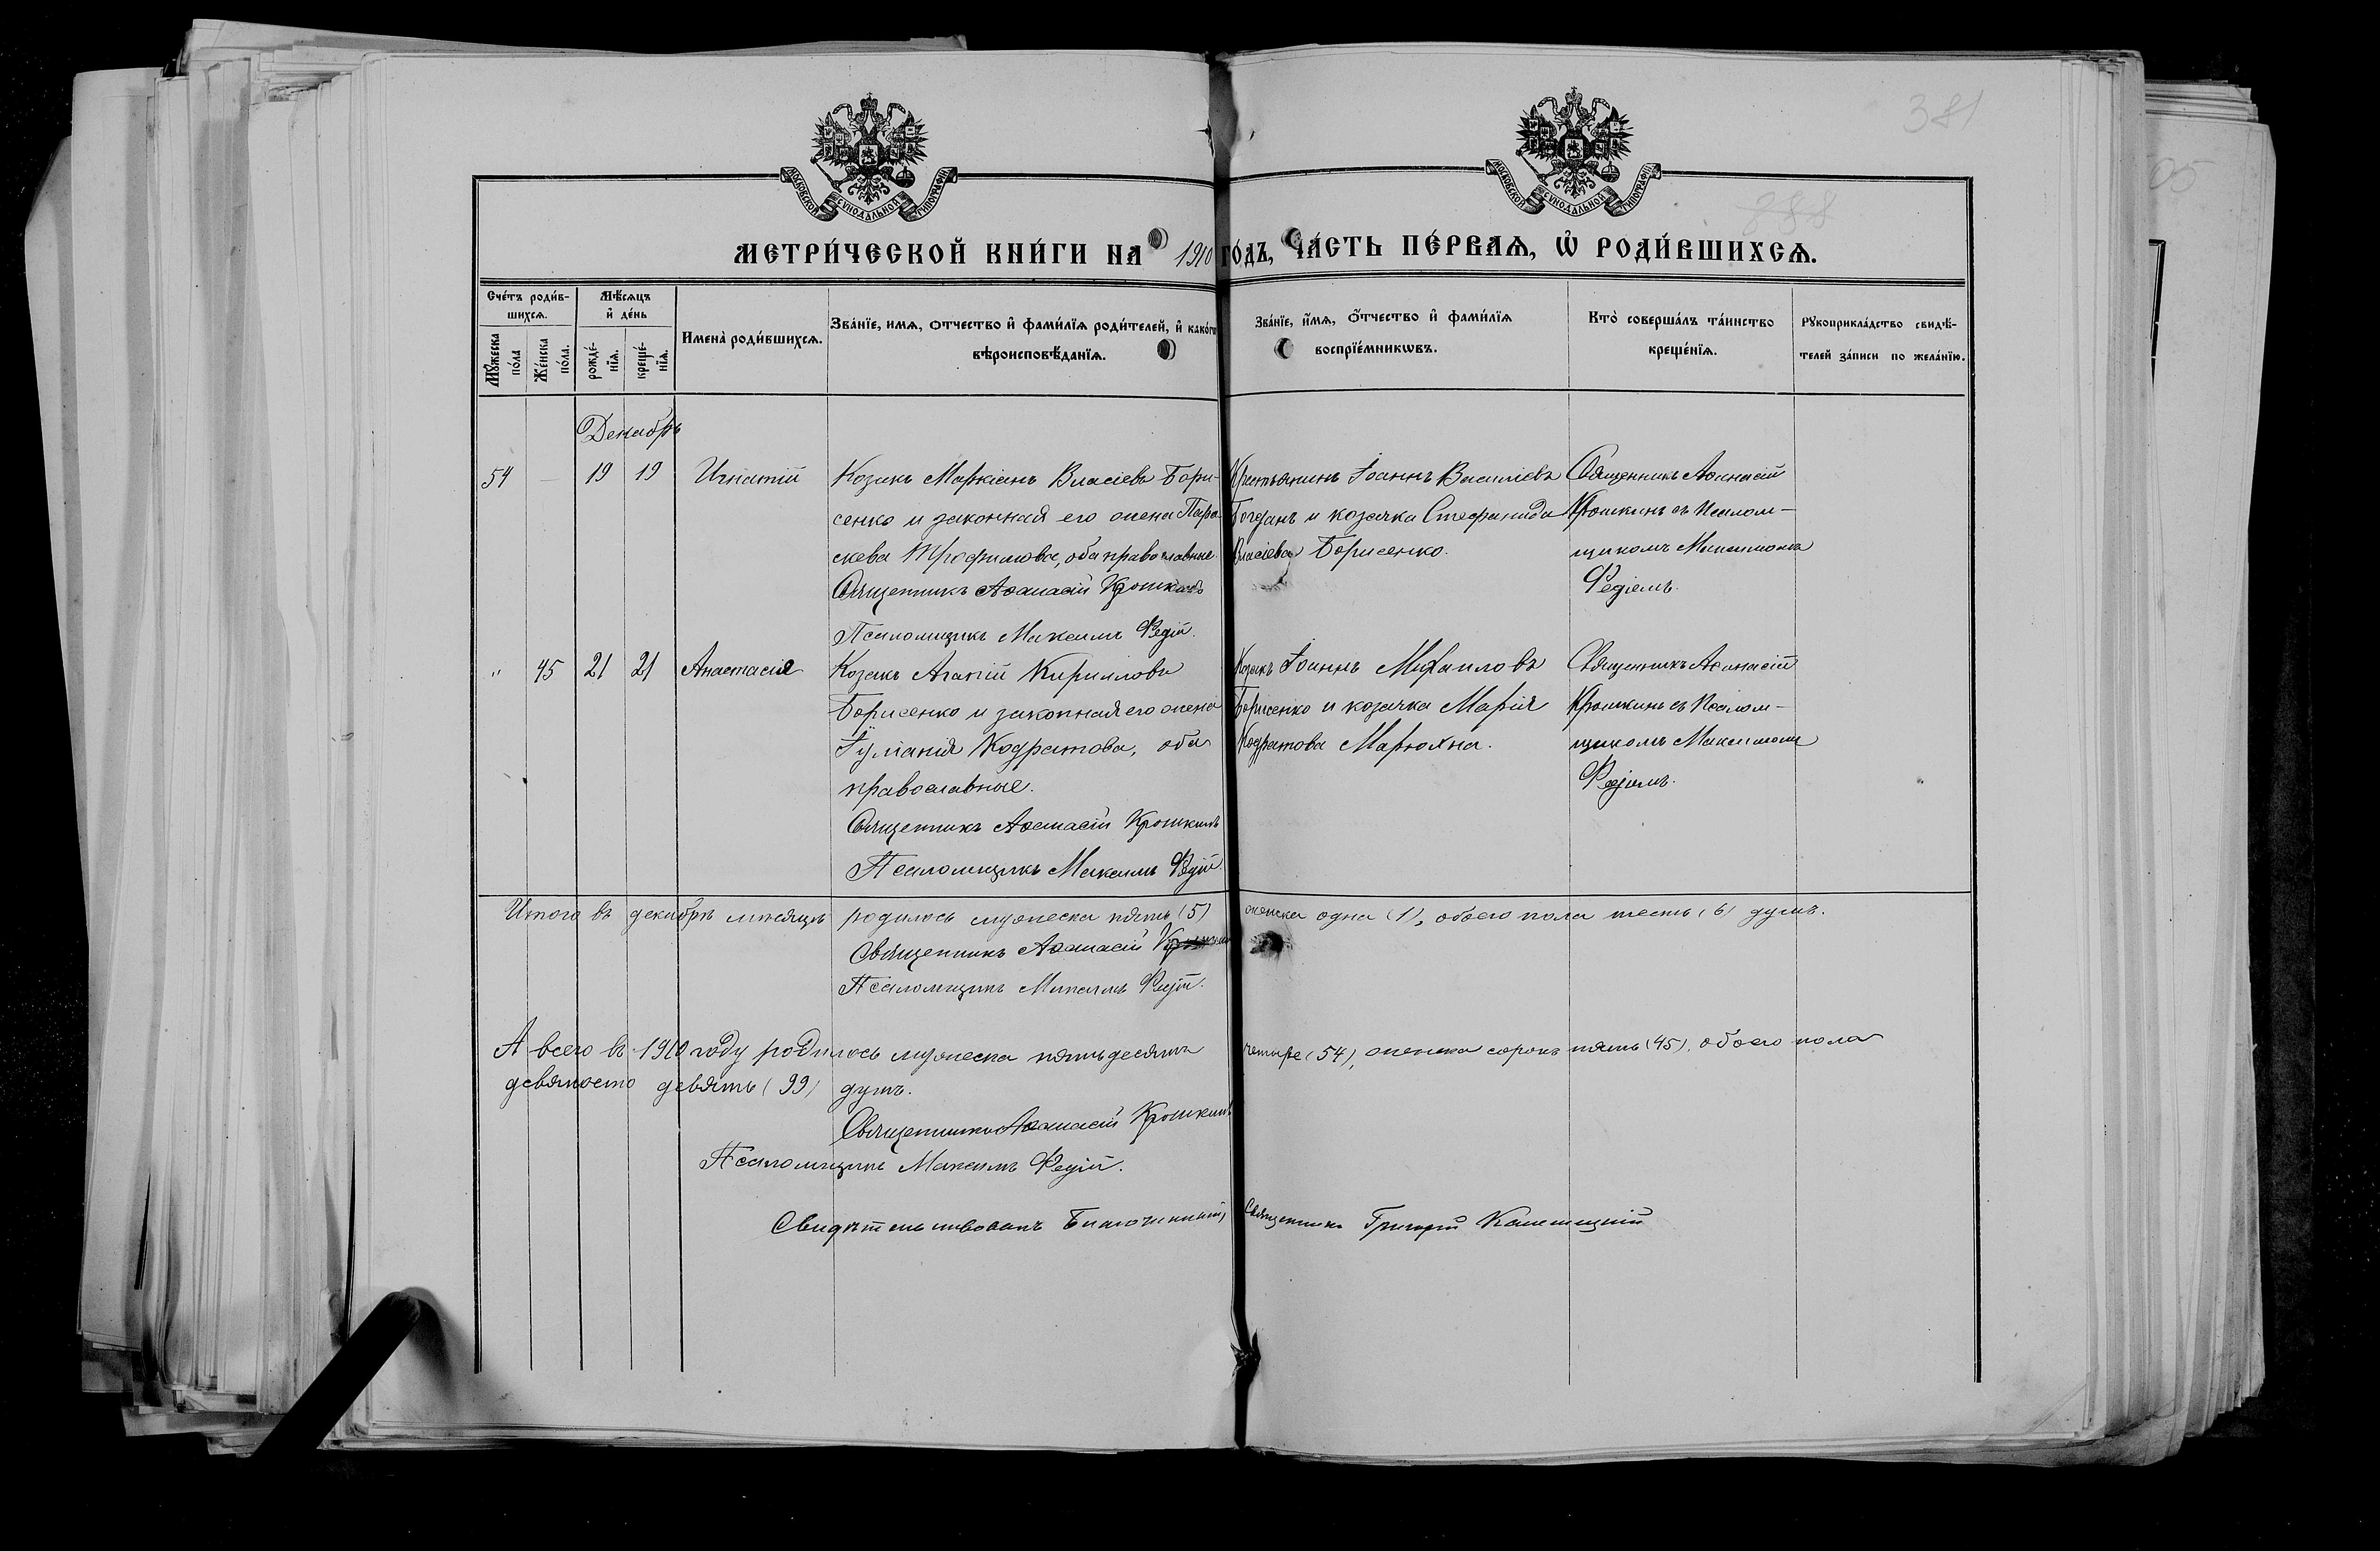 381
888
05
МОСКОВСКОЙ СѴНОДАЛЬНОЙ ТИПОГРАФІИ
МОСКОВСКОЙ СѴНОДАЛЬНОЙ ТИПОГРАФІИ
МЕТРИ́ЧЕСКОЙ КНИ́ГИ НА 1910 ГО́ДЪ, ЧА́СТЬ ПЕ́РВАѦ, Ѡ҆ РОДИ́ВШИХСѦ.
Сче́тъ роди́в-
шихсѧ.
Мꙋ́жеска по́ла
Же́нска по́ла.
Мѣ́сѧцъ и҆ де́нь
рожде́-нїѧ.
креще́-нїѧ.
Имена̀ роди́вшихсѧ.
Зва́нїе, имѧ, ѻтчество и҆ фами́лїѧ роди́телей, и҆ како́гѡ
вѣроисповѣ́данїѧ.
Зва́нїе, и҆́мѧ, ѻ҆́тчество и҆ фами́лїѧ
воспрїе́мникѡвъ.
Кто̀ соверша́лъ та́инство
креще́нїѧ.
Рꙋкоприкла́дство свидѣ́-
телей за́писи по жела́нїю.
Декабрь
54 — 19 19 Игнатій
Козакъ Маркіанъ Власіевъ Бори-
сенко и законная его жена Пара-
скева Трофимова, оба православные.
Священникъ Аѳанасій Крошкинъ
Псаломщикъ Максимъ Федій.
Крестьянинъ Іоаннъ Василіевъ
Богданъ и козачка Стефанида
Власіева Борисенко.
Священникъ Аѳанасій
Крошкинъ съ Псалом-
щикомъ Максимомъ
Федіемъ.
" 45 21 21 Анастасія
Козакъ Агапій Кирилловъ
Борисенко и законная его жена
Іуліанія Кодратова, оба
православные.
Священникъ Аѳанасій Крошкинъ
Псаломщикъ Максимъ Федій.
Козакъ Іоаннъ Михаиловъ
Борисенко и козачка Марія
Кодратова Марюхна.
Священникъ Аѳанасій
Крошкинъ съ Псалом-
щикомъ Максимомъ
Федіемъ.
Итого въ декабрѣ мѣсяцѣ родилось мужеска пять (5) женска одна (1), обоего пола шесть (6) душъ.
Священникъ Аѳанасій
Псаломщикъ Максимъ Федій.
А всего въ 1910 году родилось мужеска пятьдесятъ четыре (54), женска сорокъ пять (45), обоего пола
девяносто девять (99) душъ.
Священникъ Аѳанасій Крошкинъ
Псаломщикъ Максимъ Федій.
Благочинный, Священникъ Григорій